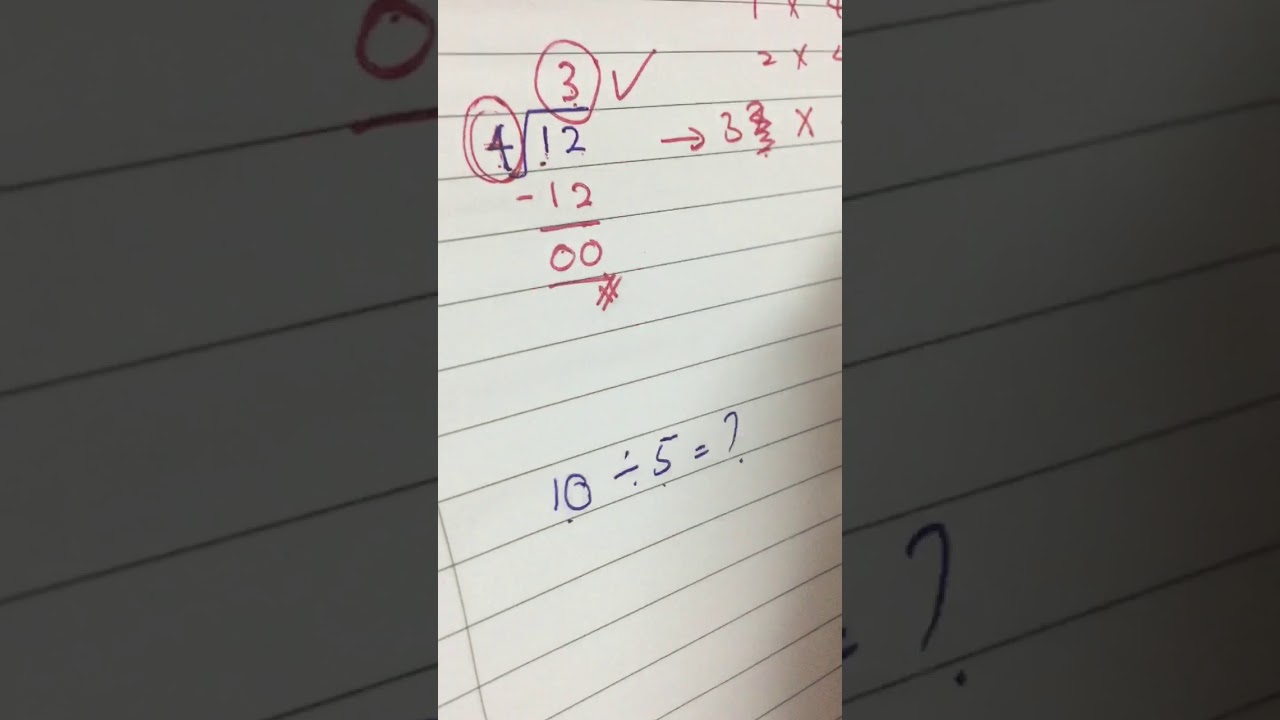 1 x
2 x
3 ✓
4 12
→ 3 x
- 12
00
10 ÷ 5 = ?